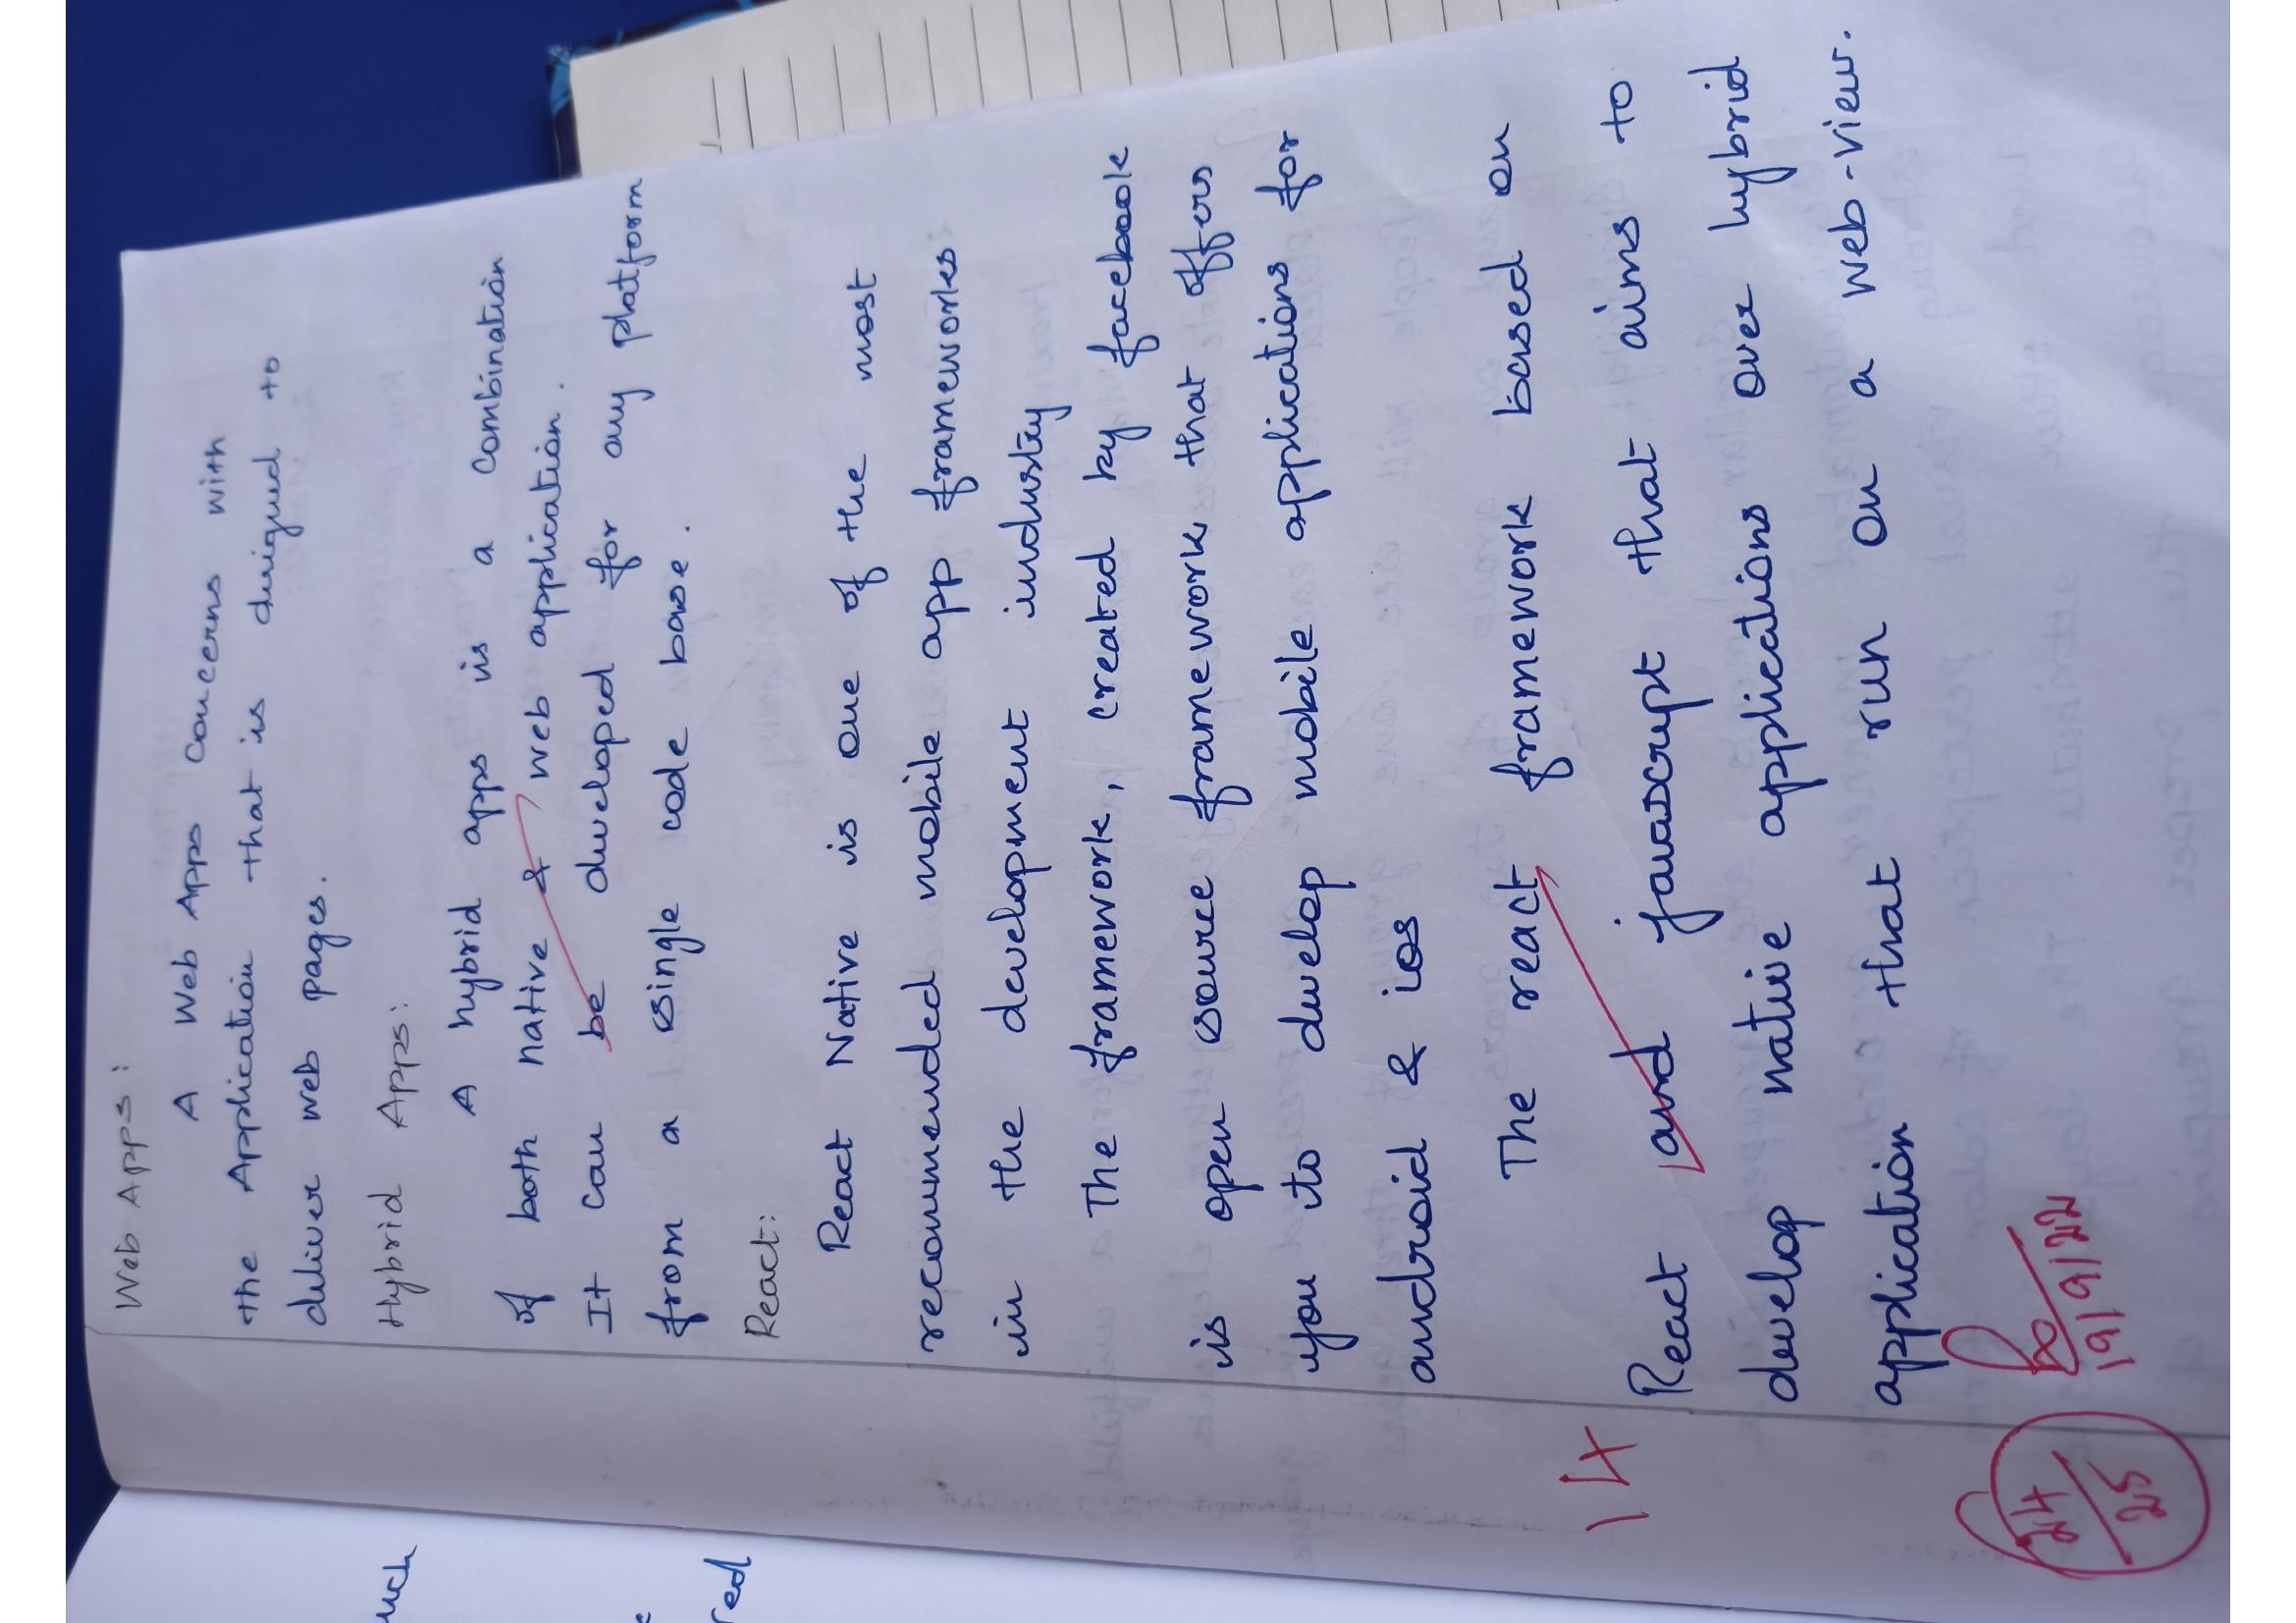 Web Apps:
A Web Apps concerns with
the Application that is designed to
deliver web pages.
Hybrid Apps:
A hybrid apps is a combination
of both native & web application.
It can be developed for any platform
from a single code base.
React:
React Native is one of the most
recommended mobile app frameworks
in the development industry
The framework, created by facebook
is open source framework that offers
you to develop mobile applications for
android & ios
The react framework based on
14
React and javascript that aims to
develop native applications over hybrid
application that run on a web-view.
24
25
19/9/22
uch
red